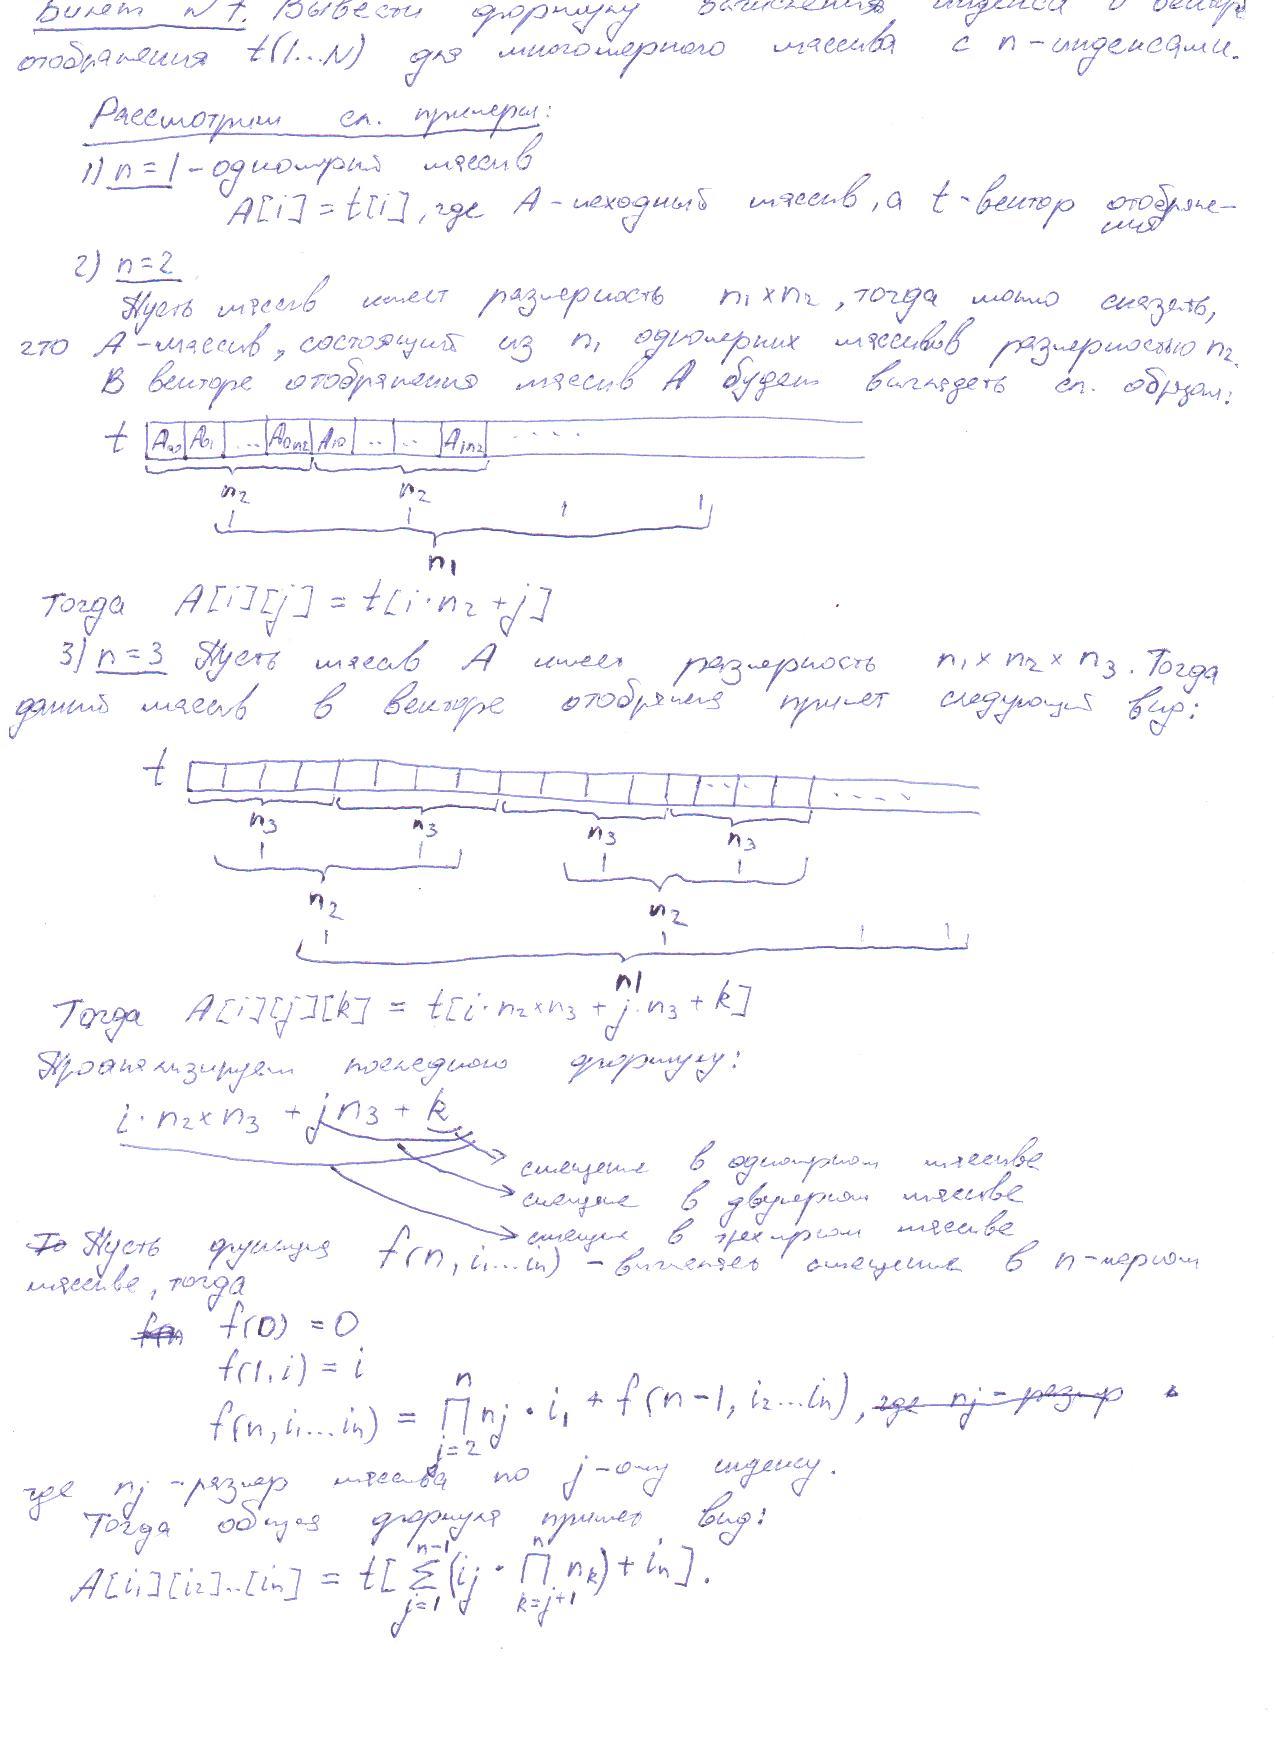 Билет N 7. Вывести формулу вычисления индекса в векторе
отображения t(1...N) для многомерного массива с n-индексами.
Рассмотрим сл. примеры:
1) n=1 - одномерный массив
A[i] = t[i], где A - исходный массив, а t - вектор отображе-
ния
2) n=2
Пусть массив имеет размерность n₁×n₂, тогда можно сказать,
что A - массив, состоящий из n₁ одномерных массивов размерностью n₂.
В векторе отображения массив A будет выглядеть сл. образом:
t A₀₀ A₀₁ ... A₀ₙ₂ A₁₀ .. .. A₁ₙ₂ ....
n₂ n₂
n₁
Тогда A[i][j] = t[i·n₂+j]
3) n=3 Пусть массив A имеет размерность n₁×n₂×n₃. Тогда
данный массив в векторе отображения примет следующий вид:
t ... ....
n₃ n₃ n₃ n₃
n₂ n₂
n₁
Тогда A[i][j][k] = t[i·n₂×n₃ + j·n₃ + k]
Проанализируем последнюю формулу:
i·n₂×n₃ + jn₃ + k
смещение в одномерном массиве
смещение в двумерном массиве
смещение в трехмерном массиве
Пусть функция f(n, i₁...iₙ) - вычисляет смещение в n-мерном
массиве, тогда
f(0) = 0
f(1, i) = i
f(n, i₁...iₙ) = ∏ⁿⱼ₌₂ nⱼ · i₁ + f(n-1, i₂...iₙ),
где nⱼ - размер массива по j-ому индексу.
Тогда общая формула примет вид:
A[i₁][i₂]..[iₙ] = t[∑ⁿ⁻¹ⱼ₌₁(iⱼ · ∏ⁿₖ₌ⱼ₊₁ nₖ) + iₙ].